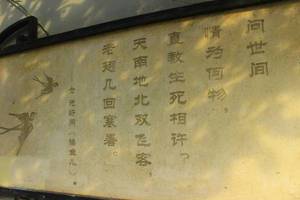 问世间
情为何物，
直教生死相许？
天南地北双飞客，
老翅几回寒暑。